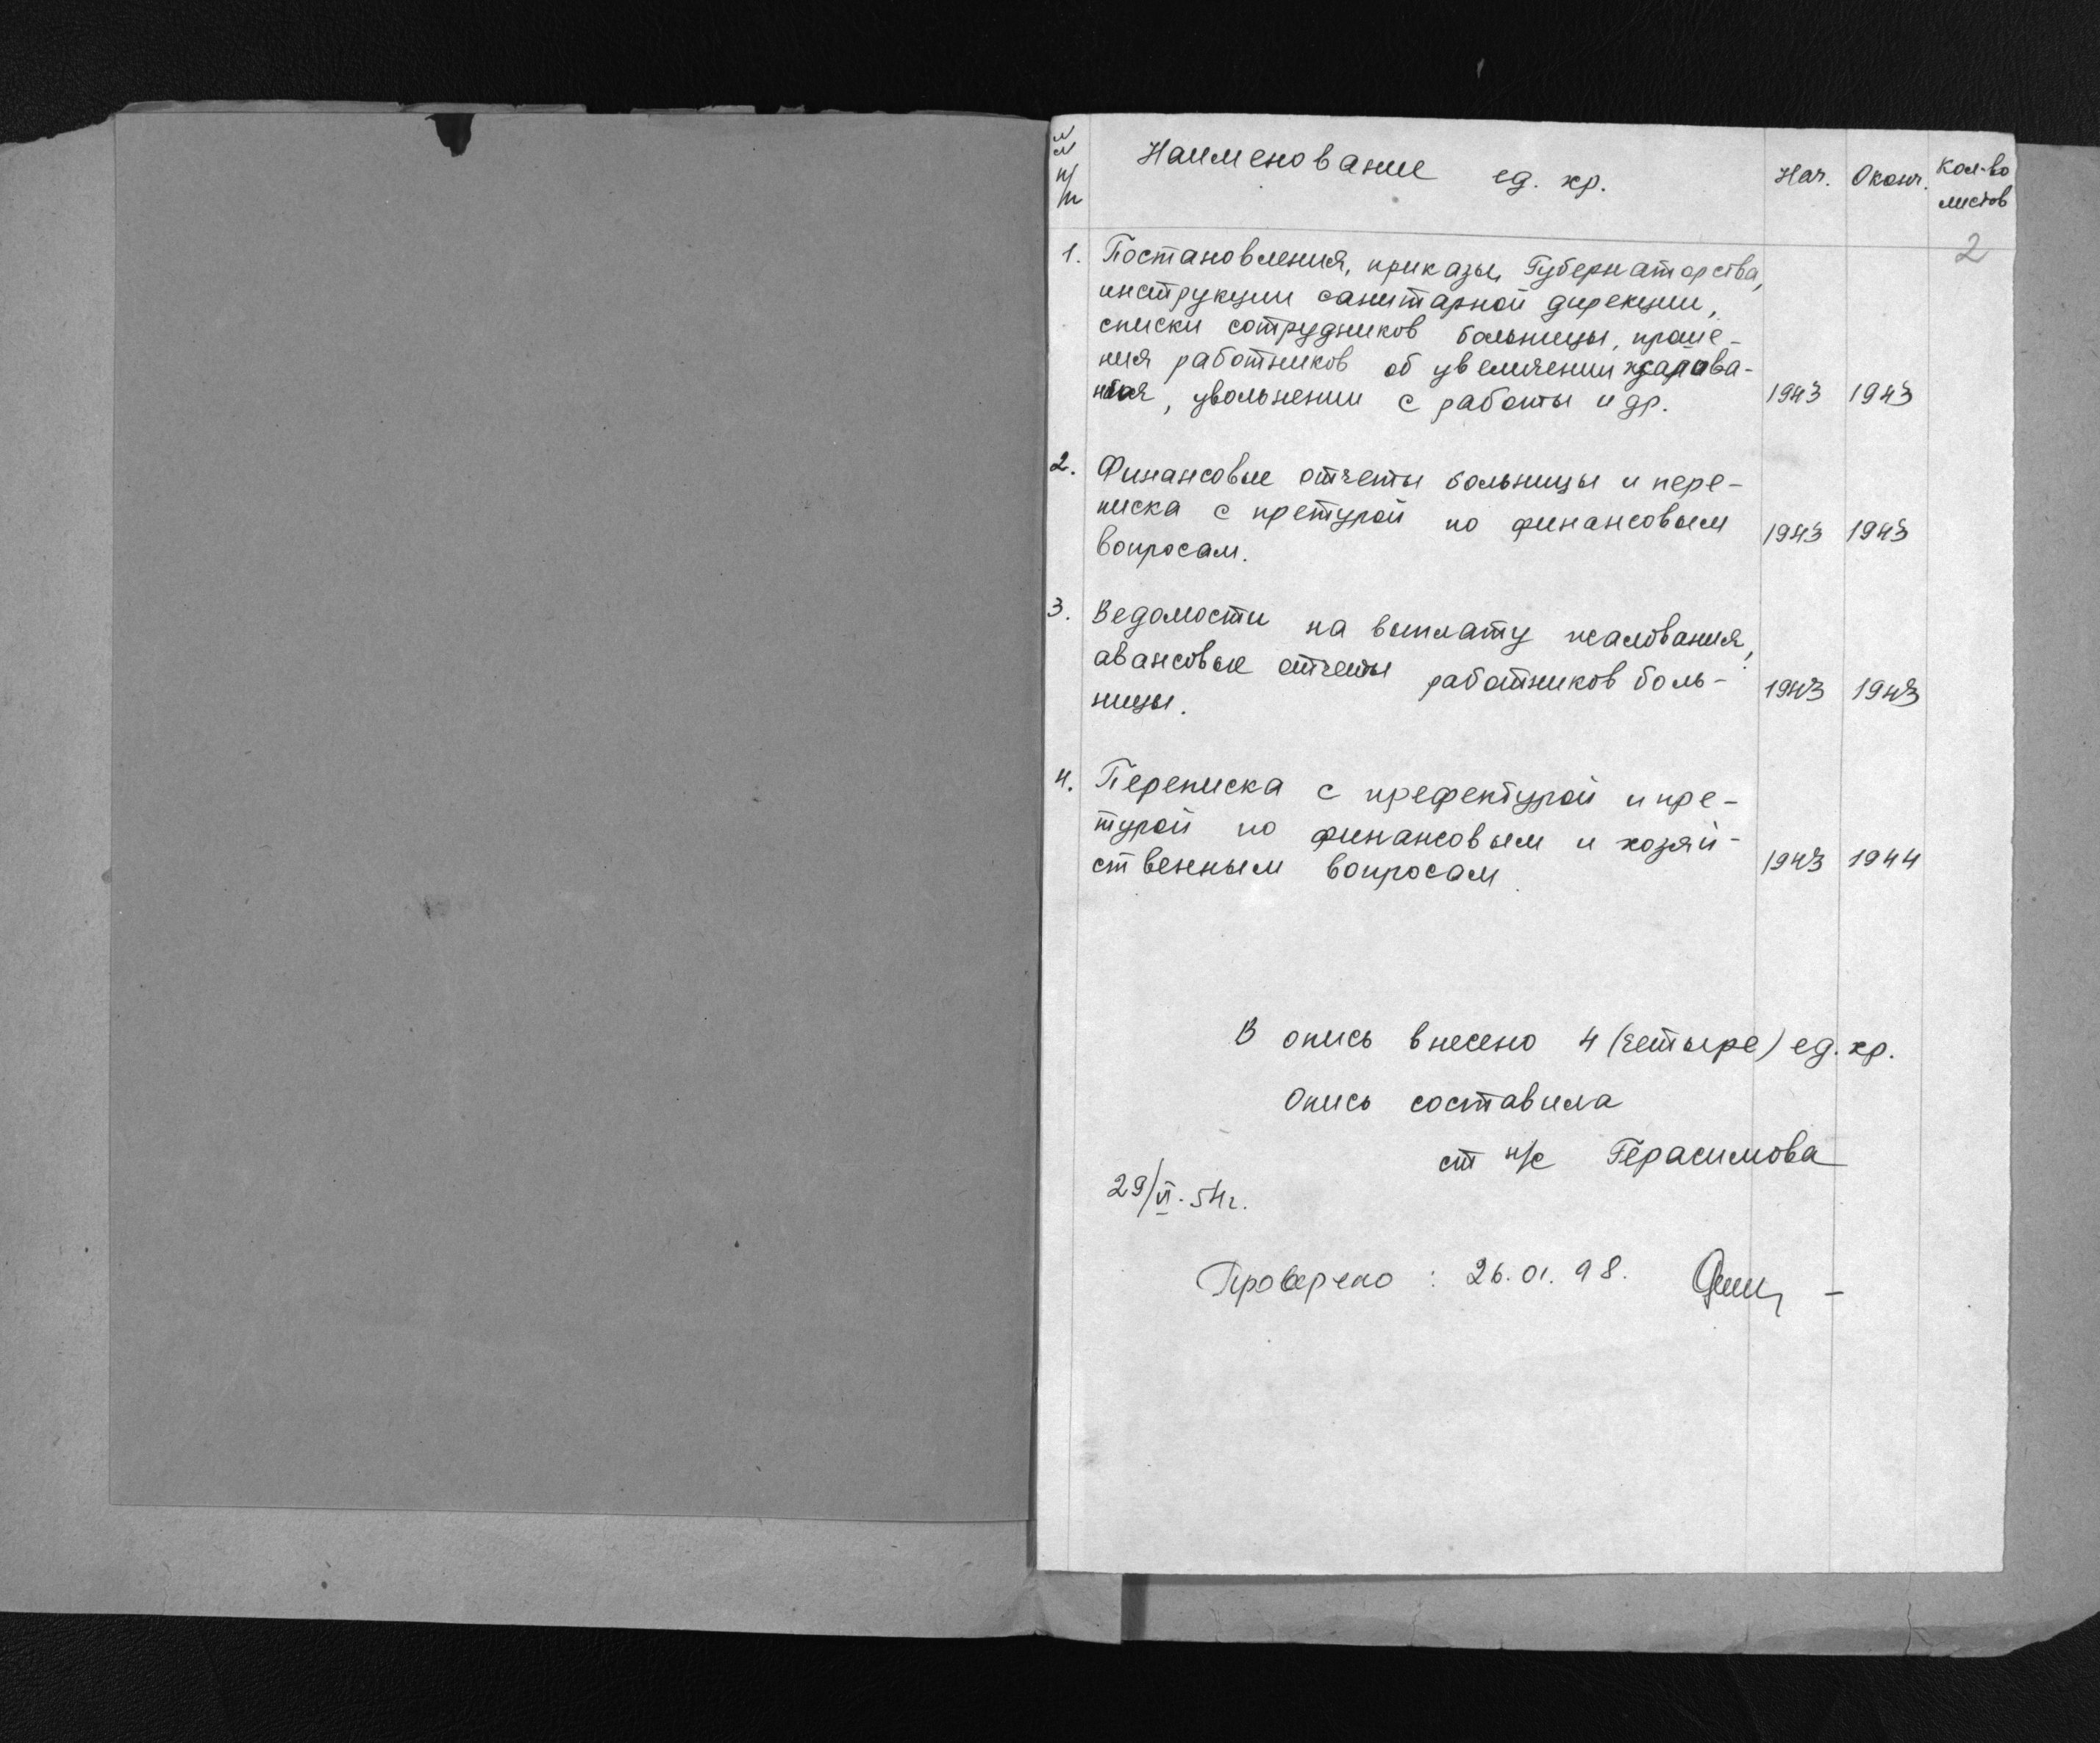 №№ п/п Наименование ед. хр. Нач. Оконч. Кол-во листов
2
1. Постановления, приказы Губернаторства,
инструкции санитарной дирекции,
списки сотрудников больницы, проше-
ния работников об увеличении жалова-
ния, увольнении с работы и др. 1943 1943
2. Финансовые отчеты больницы и пере-
писка с претурой по финансовым
вопросам. 1943 1943
3. Ведомости на выплату жалования,
авансовые отчеты работников боль-
ницы. 1943 1943
4. Переписка с префектурой и пре-
турой по финансовым и хозяй-
ственным вопросам. 1943 1944
В опись внесено 4 (четыре) ед. хр.
Опись составила
ст н/с Герасимова
29/VI-54г.
Проверено: 26.01.98.